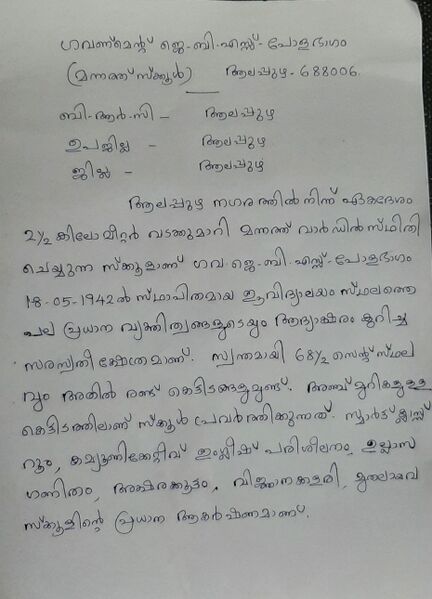 ഗവണ്മെന്റ് ജെ-ബി-എസ്സ്- പോളഭാഗം
(മന്നത്ത് സ്ക്കൂൾ) ആലപ്പുഴ - 688006.
ബി-ആർ-സി - ആലപ്പുഴ
ഉപജില്ല - ആലപ്പുഴ
ജില്ല - ആലപ്പുഴ
ആലപ്പുഴ നഗരത്തിൽ നിന്ന് ഏകദേശം
2½ കിലോമീറ്റർ വടക്കുമാറി മന്നത്ത് വാർഡിൽ സ്ഥിതി
ചെയ്യുന്ന സ്ക്കൂളാണ് ഗവ-ജെ-ബി-എസ്സ്-പോളഭാഗം
18-05-1942ൽ സ്ഥാപിതമായ ഈ വിദ്യാലയം സ്ഥലത്തെ
പല പ്രധാന വ്യക്തിത്വങ്ങളുടെയും ആദ്യാക്ഷരം കുറിച്ച
സരസ്വതീ ക്ഷേത്രമാണ്. സ്വന്തമായി 68½ സെന്റ് സ്ഥല
വും അതിൽ രണ്ട് കെട്ടിടങ്ങളുമുണ്ട്. അഞ്ച് മുറികളുള്ള
കെട്ടിടത്തിലാണ് സ്കൂൾ പ്രവർത്തിക്കുന്നത്. സ്മാർട്ട് ക്ലാസ്സ്
റൂം, കമ്യൂണിക്കേറ്റീവ് ഇംഗ്ലീഷ് പരിശീലനം, ഉല്ലാസ
ഗണിതം, അക്ഷരക്കൂട്ടം, വിജ്ഞാനകളരി, മുതലായവ
സ്ക്കൂളിന്റെ പ്രധാന ആകർഷണമാണ്.